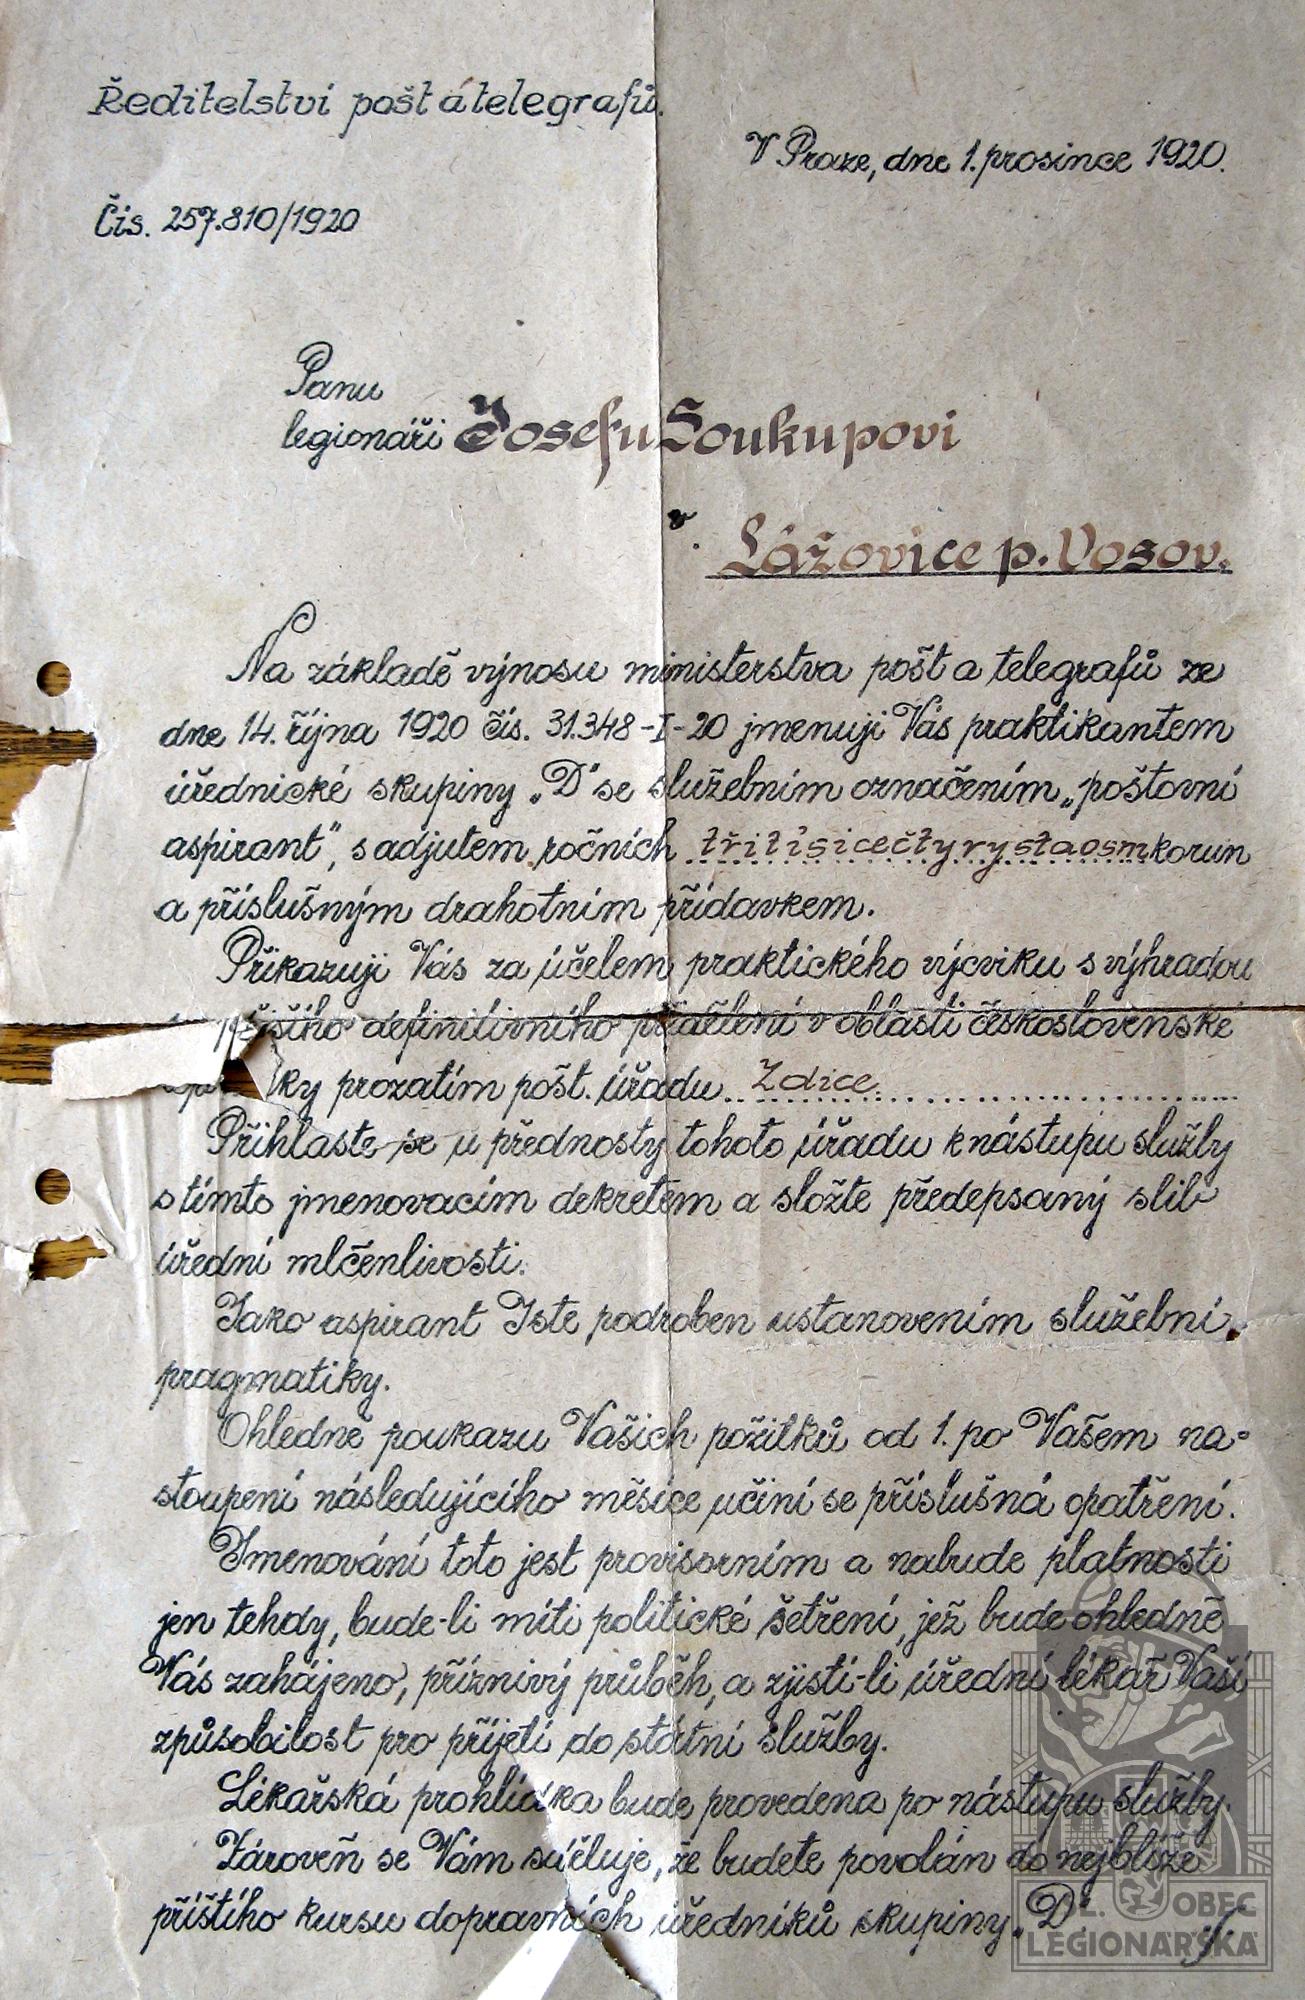 Ředitelství pošt a telegrafů.
V Praze, dne 1. prosince 1920.
Čís. 257.810/1920
Panu
legionáři Josefu Soukupovi
v
Lážovice p. Vosov.
Na základě výnosu ministerstva pošt a telegrafů ze
dne 14. října 1920 čís. 31.348-I-20 jmenuji Vás praktikantem
úřednické skupiny „D" se služebním označením „poštovní
aspirant", s adjutem ročních třitisícečtyrystaosm korun
a příslušným drahotním přídavkem.
Přikazuji Vás za účelem praktického výcviku s výhradou
definitivního přidělení v oblasti československé
prozatím pošt. úřadu Zdice
Přihlaste se u přednosty tohoto úřadu k nástupu služby
s tímto jmenovacím dekretem a složte předepsaný slib
úřední mlčenlivosti.
Jako aspirant Jste podroben ustanovením služební
pragmatiky.
Ohledně poukazu Vašich požitků od 1. po Vašem na-
stoupení následujícího měsíce učiní se příslušná opatření.
Jmenování toto jest provisorním a nabude platnosti
jen tehdy, bude-li míti politické šetření, jež bude ohledně
Vás zahájeno, příznivý průběh, a zjistí-li úřední lékař Vaši
způsobilost pro přijetí do státní služby.
Lékařská prohlídka bude provedena po nástupu služby.
Zároveň se Vám sděluje, že budete povolán do nejblíže
příštího kursu dopravních úředníků skupiny „D".
Č. OBEC
LEGIONÁŘSKÁ